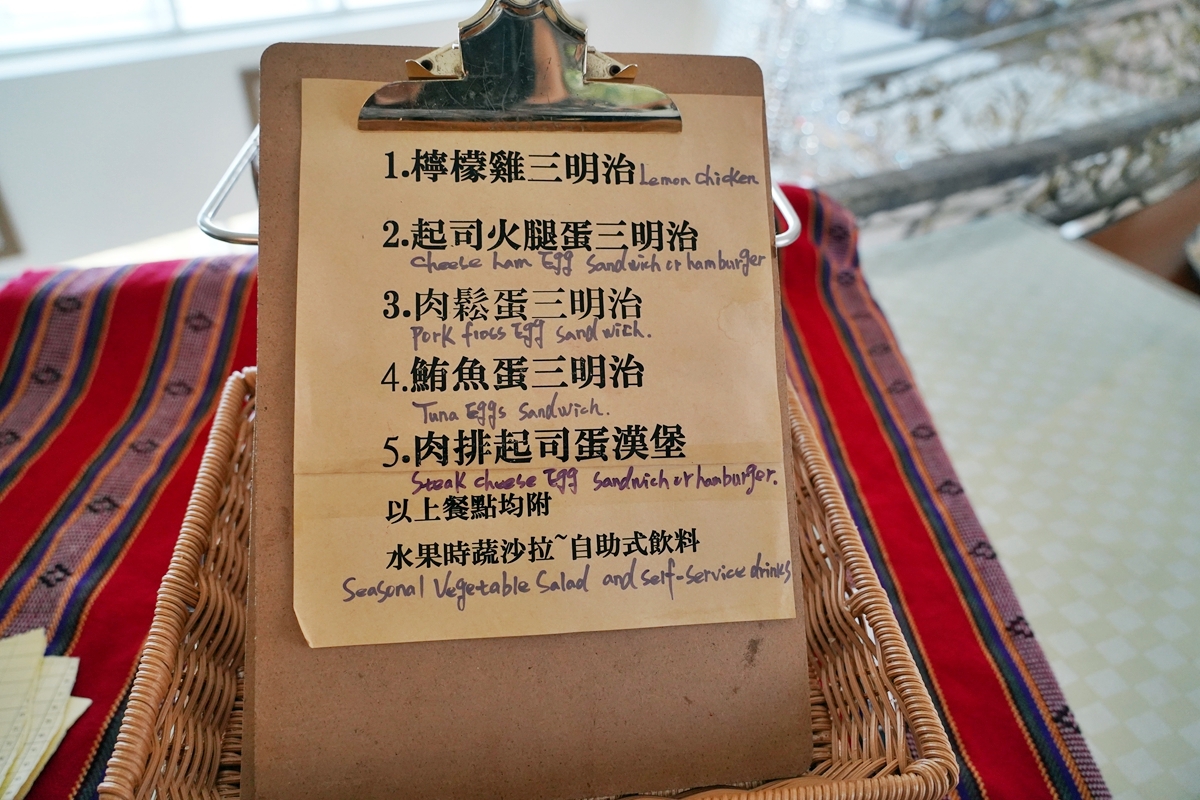 1.檸檬雞三明治 Lemon chicken
2.起司火腿蛋三明治
cheese ham Egg sandwich or hamburger
3.肉鬆蛋三明治
Pork fross Egg sandwich.
4.鮪魚蛋三明治
Tuna Eggs sandwich.
5.肉排起司蛋漢堡
Steak cheese Egg sandwich or hamburger.
以上餐點均附
水果時蔬沙拉~自助式飲料
Seasonal Vegetable Salad and self-service drinks